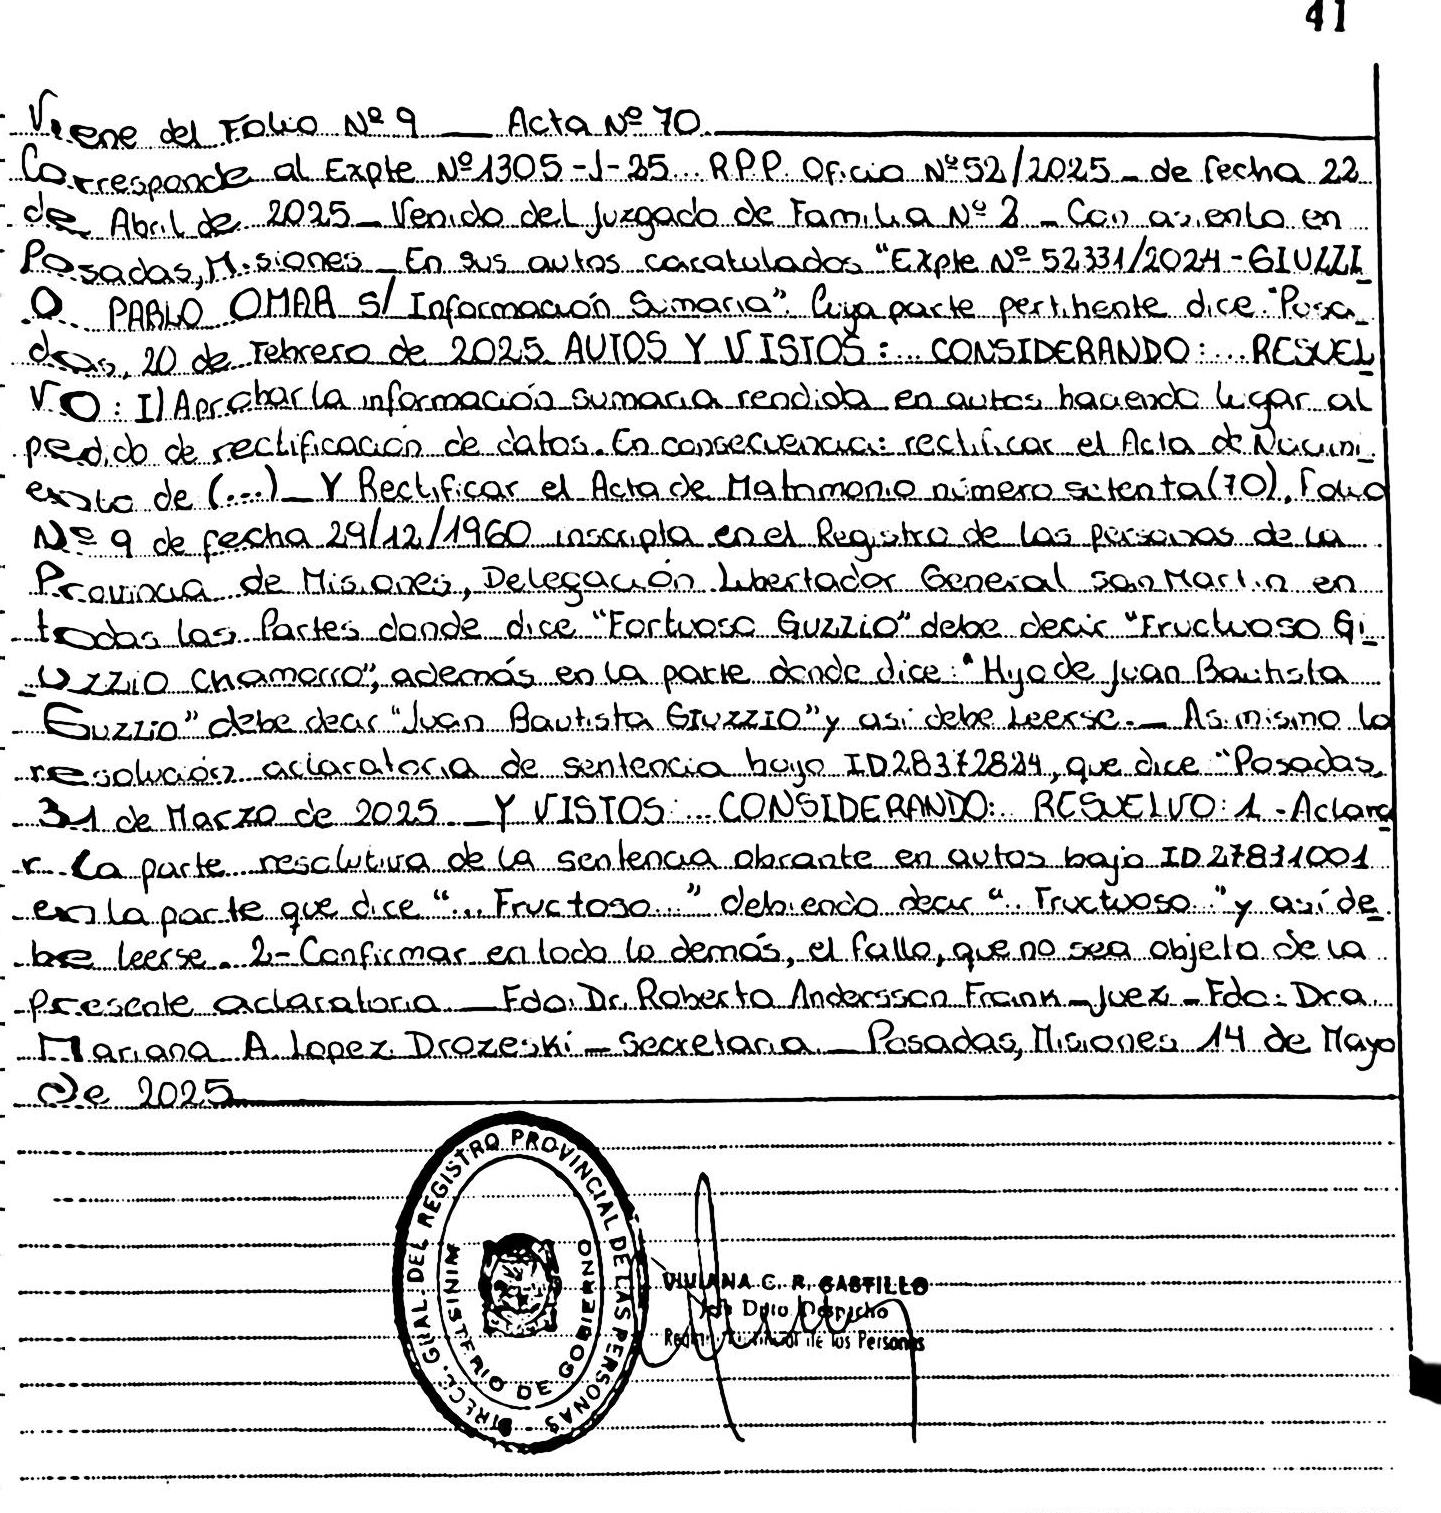 41
Viene del Folio Nº 9 __ Acta Nº 70.
Corresponde al Expte Nº 1305-J-25... RPP. Oficio Nº 52/2025 - de fecha 22
de Abril de 2025 - Venido del Juzgado de Familia Nº 2 - Con asiento en
Posadas, Misiones - En sus autos caratulados "Expte Nº 52331/2024 - GIUZZI
O PABLO OMAR S/ Información Sumaria". Cuya parte pertinente dice "Posa
das, 20 de Febrero de 2025 AUTOS Y VISTOS:... CONSIDERANDO:... RESUEL
VO: I) Aprobar la información sumaria rendida en autos haciendo lugar al
pedido de rectificación de datos. En consecuencia: rectificar el Acta de Nacimi
ento de (...) - Y Rectificar el Acta de Matrimonio número setenta (70), Folio
Nº 9 de fecha 29/12/1960 inscripta en el Registro de las personas de la
Provincia de Misiones, Delegación Libertador General San Martin en
todas las Partes donde dice "Fortuoso Guzzio" debe decir "Fructuoso Gi
uzzio Chamorro", además en la parte donde dice: "Hijo de Juan Bautista
Guzzio" debe decir "Juan Bautista Giuzzio" y así debe Leerse. - Asimismo la
resolución aclaratoria de sentencia bajo ID28372824, que dice "Posadas,
31 de Marzo de 2025. - Y VISTOS:... CONSIDERANDO:.. RESUELVO: 1 - Aclara
r La parte resolutiva de la sentencia obrante en autos bajo ID27831001
en la parte que dice "... Fructoso..." debiendo decir ".. Fructuoso.." y así de
be leerse. 2- Confirmar en todo lo demás, el fallo, que no sea objeto de la
presente aclaratoria - Fdo: Dr. Roberto Andersson Frank - Juez - Fdo: Dra.
Mariana A. Lopez Drozeski - Secretaria - Posadas, Misiones 14 de Mayo
de 2025
DIRECC. GRAL. DEL REGISTRO PROVINCIAL DE LAS PERSONAS
MINISTERIO DE GOBIERNO
VIVIANA C. R. CASTILLO
Jefe Dpto Despacho
Registro Provincial de las Personas